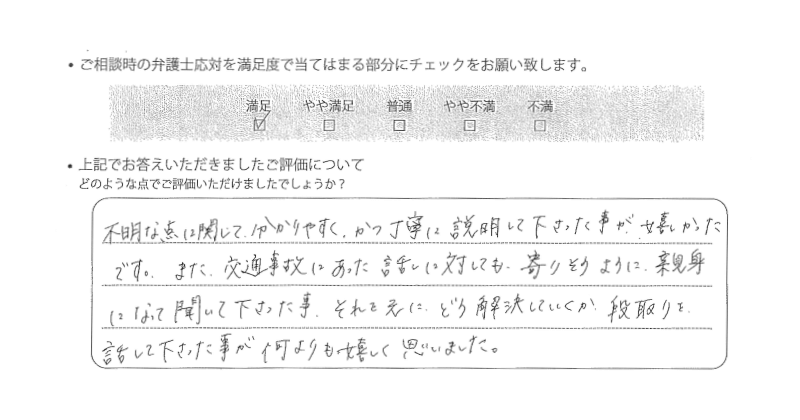 • ご相談時の弁護士応対を満足度で当てはまる部分にチェックをお願い致します。
満足 やや満足 普通 やや不満 不満
☑ □ □ □ □
• 上記でお答えいただきましたご評価について
どのような点でご評価いただけましたでしょうか？
不明な点に関して、分かりやすく、かつ丁寧に説明して下さった事が嬉しかった
です。また、交通事故にあった話しに対しても、寄りそうように、親身
になって聞いて下さった事、それを元に、どう解決していくか、段取りを、
話して下さった事が何よりも嬉しく思いました。